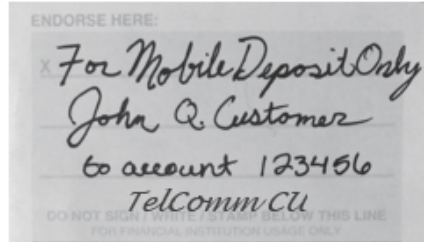 ENDORSE HERE:
X For Mobile Deposit Only
John Q. Customer
to account 123456
TelComm CU
DO NOT SIGN / WRITE / STAMP BELOW THIS LINE
FOR FINANCIAL INSTITUTION USAGE ONLY